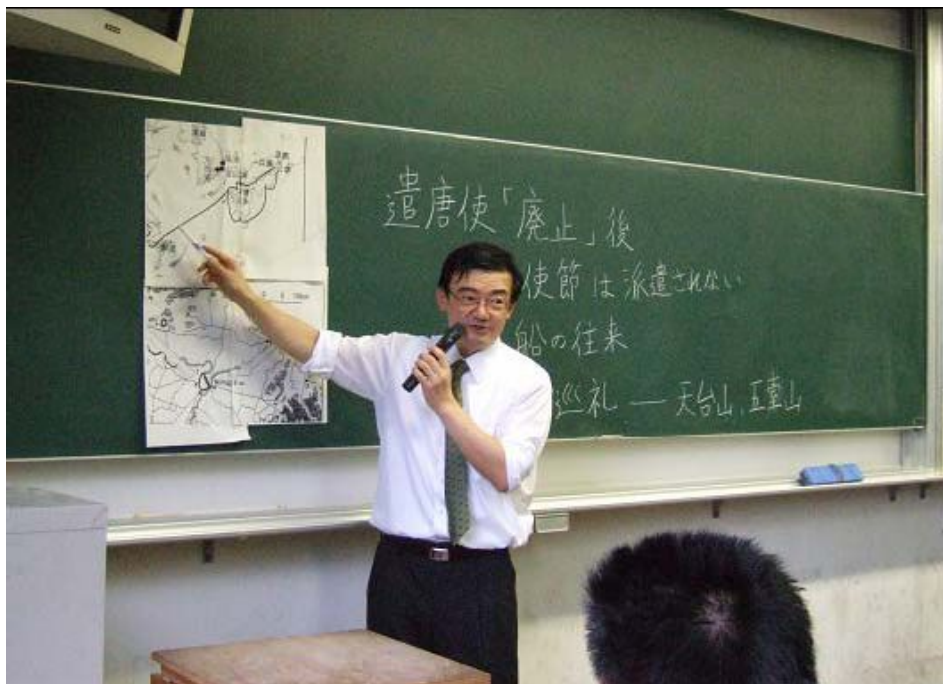 遣唐使「廃止」後
使節は派遣されない
船の往来
巡礼 — 天台山、五臺山